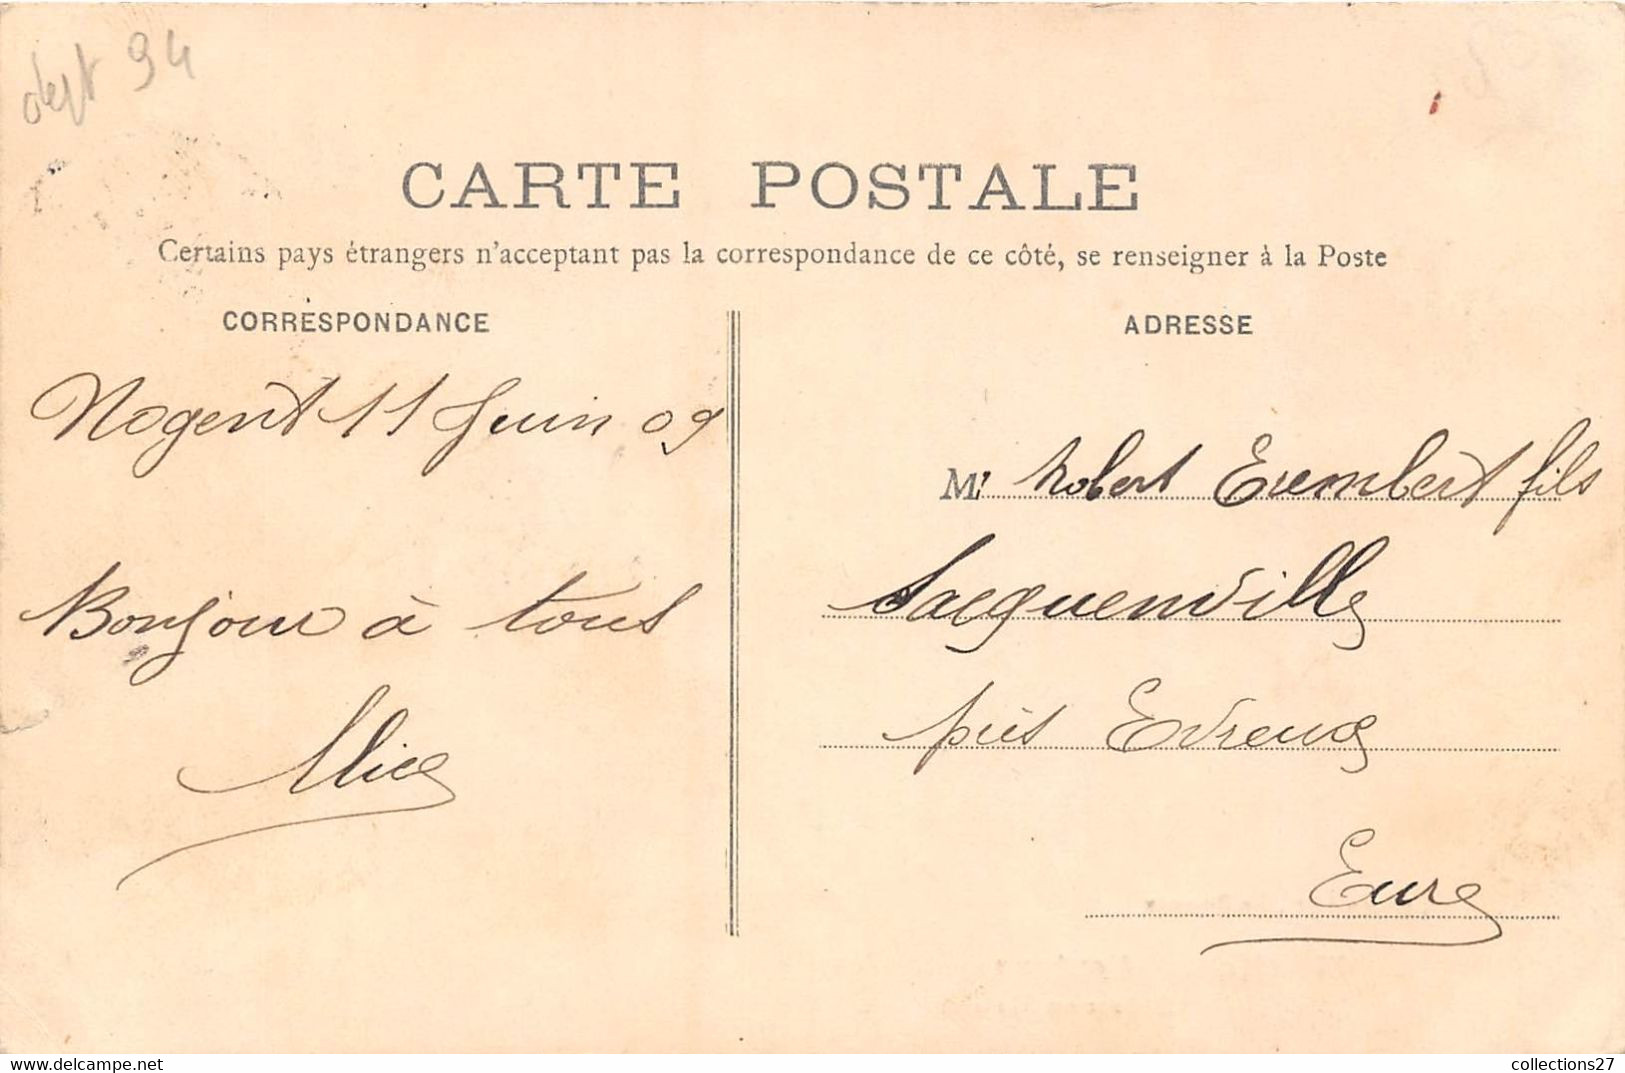 dept 94
CARTE POSTALE
Certains pays étrangers n'acceptant pas la correspondance de ce côté, se renseigner à la Poste
CORRESPONDANCE
Nogent 11 Juin 09
Bonjour à tous
Alice
ADRESSE
M r Robert Erembert fils
Sacquenville
près Evreux
Eure
www.delcampe.net
collections27